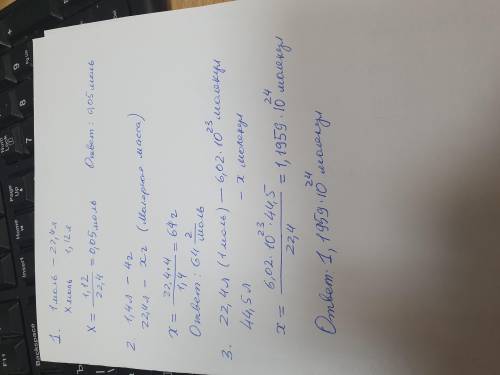 1. 1 моль – 22,4 л
X моль 1,12 л
X = 1,12 / 22,4 = 0,05 моль Ответ: 0,05 моль
2 1,4 л – 4 г
22,4 л – x г (молярная масса)
x = 22,4·4 / 1,4 = 64 г
Ответ: 64 г/моль
3. 22,4 л (1 моль) – 6,02·10²³ молекул
44,5 л – x молекул
x = 6,02·10²³·44,5 / 22,4 = 1,1959·10²⁴ молекул
Ответ: 1,1959·10²⁴ молекул
Backspace
Insert
Home
Page Up
F11
F12
7
8
9